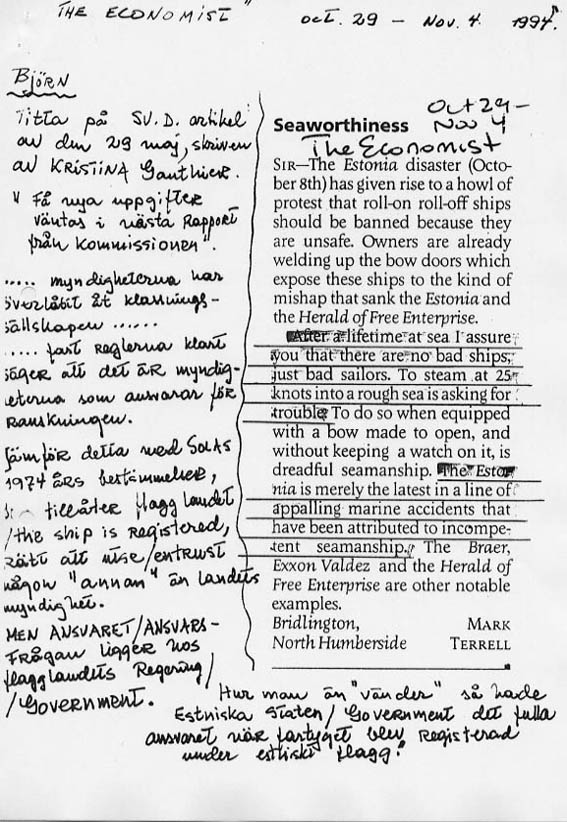 THE ECONOMIST" OCT. 29 – NOV. 4. 1994.
BJÖRN
Titta på SV.D. artikel
av den 29 maj, skriven
av KRISTINA Ganthier.
" Få nya uppgifter
väntas i nästa Rapport
från Kommissionen".
..... myndigheterna har
överlåtit åt klassnings-
sällskapen ......
..... fast Reglerna klart
säger att det är myndig-
heterna som ansvarar för
granskningen.
Jämför detta med SOLAS
1974 ÅRS bestämmelser,
tillåter flagglandet
/the ship is Registered,
rätt att utse/entrust
någon "annan" än landets
myndighet.
MEN ANSVARET/ANSVARS-
FRÅGAN ligger hos
flagglandets Regering/
/Government.
Oct 29 –
Nov 4
The Economist
Seaworthiness
SIR—The Estonia disaster (Octo-
ber 8th) has given rise to a howl of
protest that roll-on roll-off ships
should be banned because they
are unsafe. Owners are already
welding up the bow doors which
expose these ships to the kind of
mishap that sank the Estonia and
the Herald of Free Enterprise.
After a lifetime at sea I assure
you that there are no bad ships,
just bad sailors. To steam at 25
knots into a rough sea is asking for
trouble. To do so when equipped
with a bow made to open, and
without keeping a watch on it, is
dreadful seamanship. The Esto-
nia is merely the latest in a line of
appalling marine accidents that
have been attributed to incompe-
tent seamanship. The Braer,
Exxon Valdez and the Herald of
Free Enterprise are other notable
examples.
Bridlington, MARK
North Humberside TERRELL
Hur man än "vänder" så hade
Estniska Staten/Government det fulla
ansvaret när fartyget blev Registerad
under estnisk flagg!